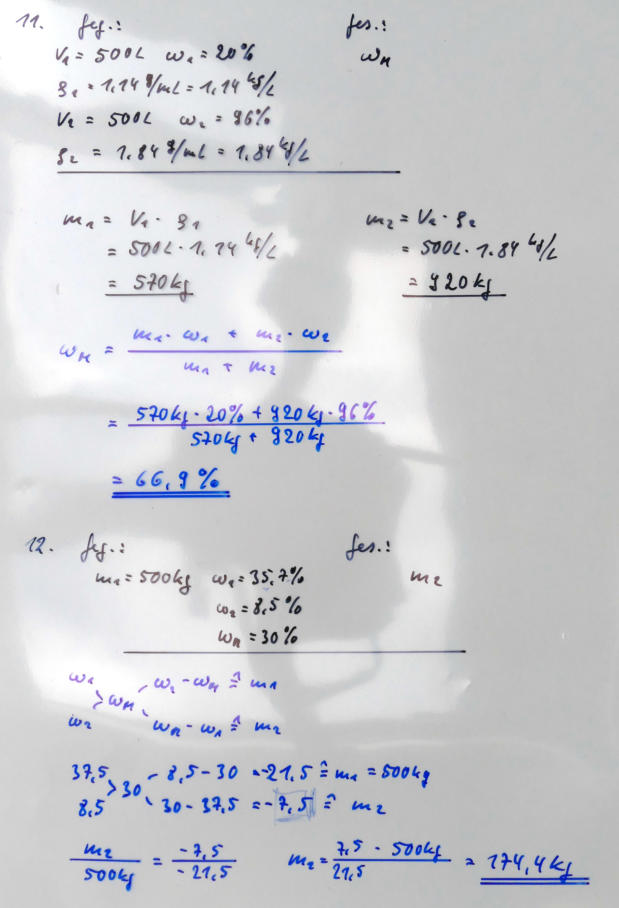 11. geg.: ges.:
V₁ = 500L ω₁ = 20% ω_M
ρ₁ = 1,14 g/mL = 1,14 kg/L
V₂ = 500L ω₂ = 96%
ρ₂ = 1.84 g/mL = 1.84 kg/L
m₁ = V₁ · ρ₁ m₂ = V₂ · ρ₂
= 500L · 1,14 kg/L = 500L · 1.84 kg/L
= 570kg = 920kg
ω_M = (m₁ · ω₁ + m₂ · ω₂) / (m₁ + m₂)
= (570kg · 20% + 920kg · 96%) / (570kg + 920kg)
= 66,9%
12. geg.: ges.:
m₁ = 500kg ω₁ = 35,7% m₂
ω₂ = 8,5%
ω_M = 30%
ω₁ > ω_M ω₂ - ω_M ≙ m₁
ω₂ ω_M - ω₁ ≙ m₂
37,5 > 30 8,5 - 30 = -21,5 ≙ m₁ = 500kg
8,5 30 - 37,5 = -7,5 ≙ m₂
m₂ / 500kg = -7,5 / -21,5 m₂ = (7,5 · 500kg) / 21,5 = 174,4kg